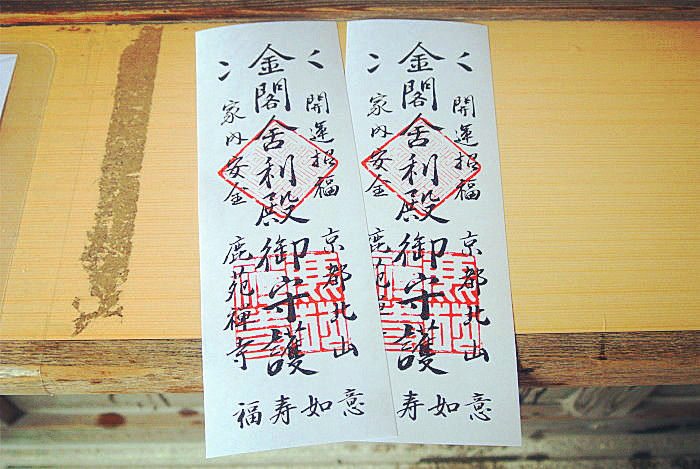 開運招福
京都北山
金閣舎利殿御守護
家内安全
鹿苑禅寺
福寿如意
開運招福
京都北山
金閣舎利殿御守護
家内安全
鹿苑
寿如意